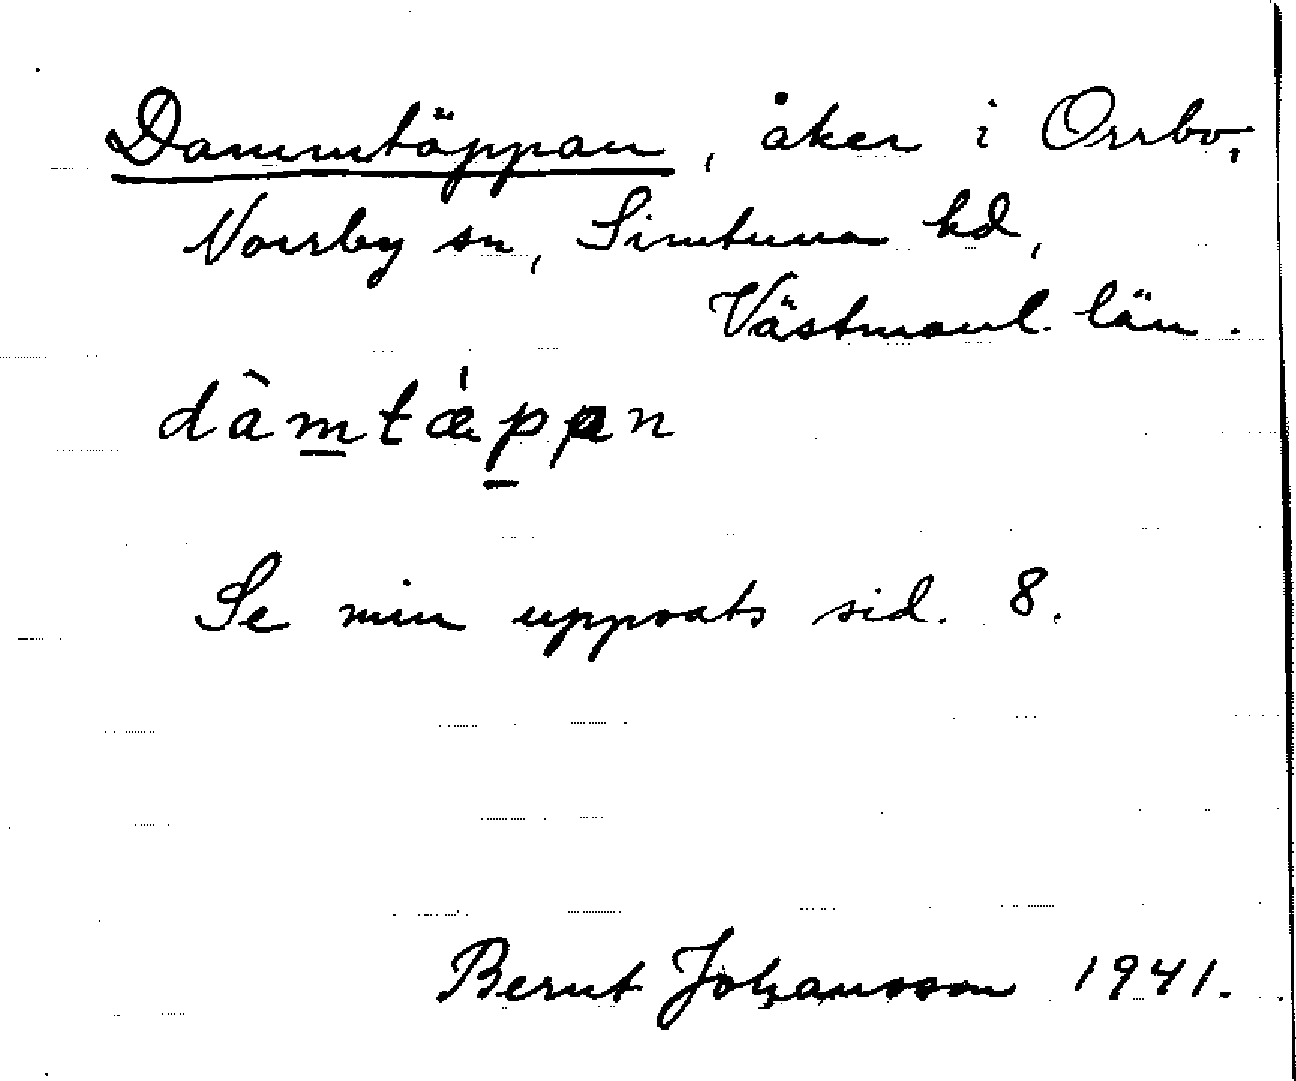 Dammtäppan, åker i Orrbo,
Norrby sn, Simtuna hd,
Västmanl. län.
dàm̲tǽp̲pan
Se min uppsats sid. 8.
Bernt Johansson 1941.